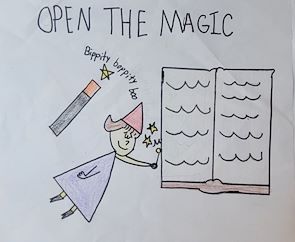 OPEN THE MAGIC
Bippity boppity
boo